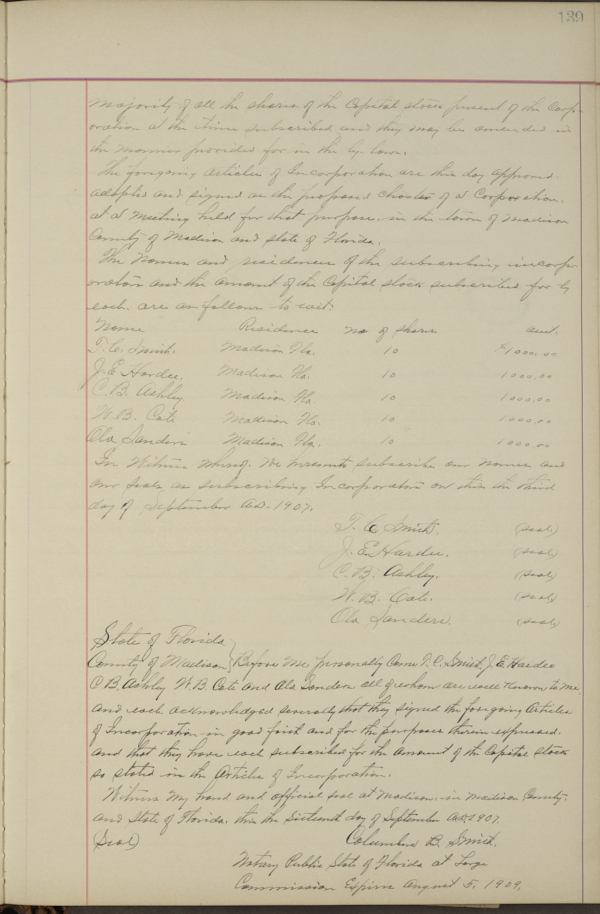 139
majority of all the shares of the Capital stock present of the Corp-
oration at the time subscribed and they may be amended in
the manner provided for in the by laws.
The foregoing Articles of Incorporation are this day approved
adopted and signed as the proposed Charter of a Corporation.
at a meeting held for that purpose, in the town of Madison
County of Madison and State of Florida.
The Names and residences of the subscribing incorp-
orators and the amount of the Capital stock subscribed for by
each are as follows to wit:
Name Residence No of Shares amt.
T. C. Smith. Madison Fla. 10 $1000.00
J. E. Hardee. Madison Fla. 10 1000.00
C. B. Ashley Madison Fla 10 1000.00
W. B. Cate Madison Fla. 10 1000.00
Ola Sanders Madison Fla. 10 1000.00
In Witness Whereof. We hereunto subscribe our names and
our seals as subscribing Incorporators on this the third
day of September A.D. 1907.
T. C. Smith. (seal)
J. E. Hardee. (seal)
C. B. Ashley. (seal)
W. B. Cate. (seal)
Ola Sanders. (seal)
State of Florida
County of Madison } Before me personally Came T. C. Smith, J. E. Hardee
C B Ashley W. B. Cate and Ola Sanders all of whom are well known to me
and each acknowledged severally that they signed the foregoing Articles
of Incorporation in good faith and for the purposes therein expressed.
and that they have each subscribed for the amount of the Capital stock
so stated in the Articles of Incorporation.
Witness my hand and official seal at Madison. in Madison County.
and State of Florida. this the Sixteenth day of September A.D. 1907.
(Seal) Columbus B. Smith.
Notary Public State of Florida at Large
Commission Expires August 5, 1909.